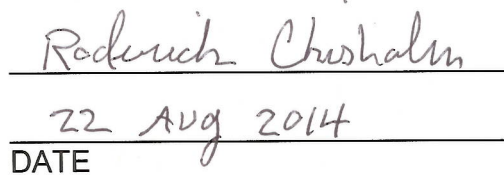 Roderick Chisholm
22 Aug 2014
DATE